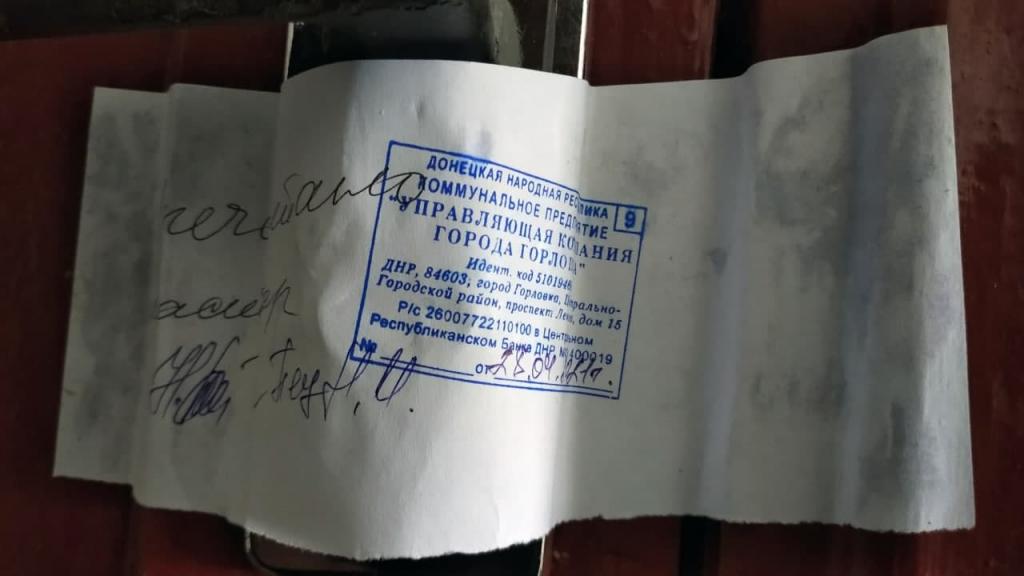 ДОНЕЦКАЯ НАРОДНАЯ РЕСПУБЛИКА
9
КОММУНАЛЬНОЕ ПРЕДПРИЯТИЕ
"УПРАВЛЯЮЩАЯ КОМПАНИЯ
ГОРОДА ГОРЛОВКА"
Идент. код 5101946
ДНР, 84603, город Горловка, Центрально-
Городской район, проспект Ленина, дом 15
Р/с 26007722110100 в Центральном
Республиканском Банке ДНР № 400019
№
от 28.04.21г.